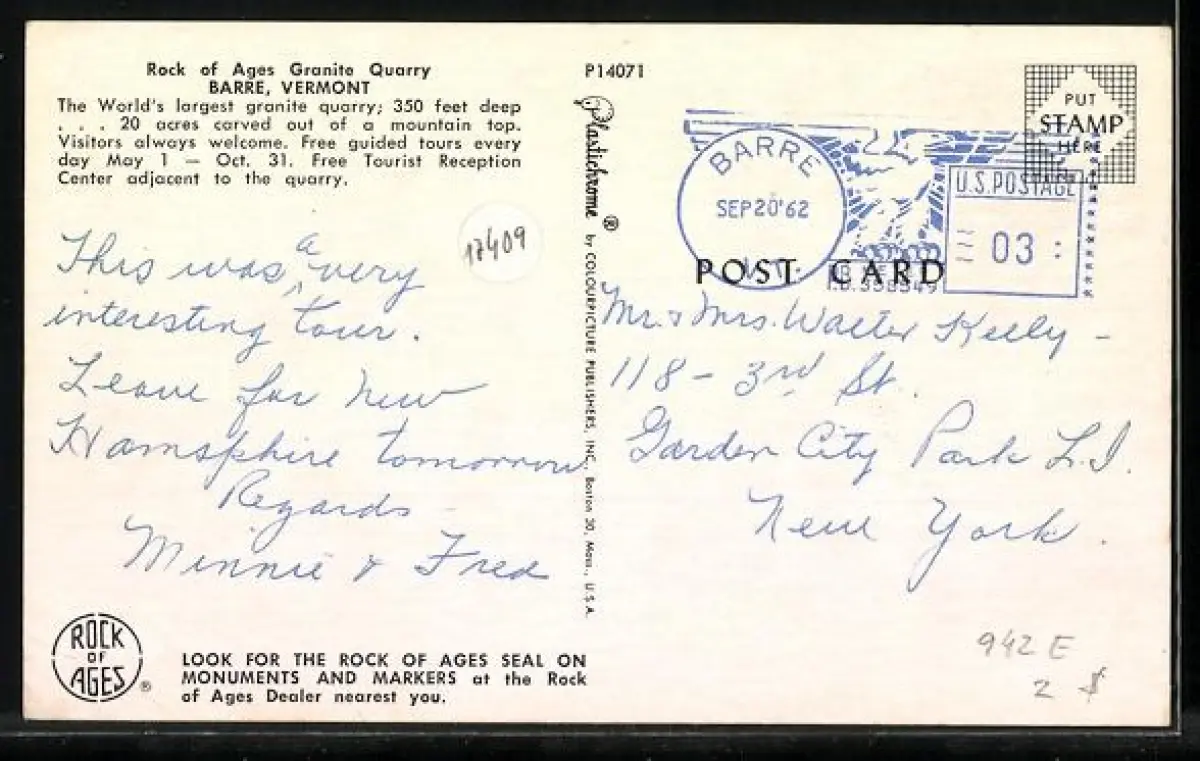 Rock of Ages Granite Quarry
BARRE, VERMONT
The World's largest granite quarry; 350 feet deep
. . . 20 acres carved out of a mountain top.
Visitors always welcome. Free guided tours every
day May 1 — Oct. 31. Free Tourist Reception
Center adjacent to the quarry.
17409
This was a very
interesting tour.
Leave for New
Hamsphire tomorrow.
Regards
Minnie & Fred
ROCK
OF
AGES ®
LOOK FOR THE ROCK OF AGES SEAL ON
MONUMENTS AND MARKERS at the Rock
of Ages Dealer nearest you.
P14071
Plastichrome ® by COLOURPICTURE PUBLISHERS, INC. Boston 30, Mass., U.S.A.
PUT
STAMP
HERE
BARRE
SEP20'62
VT.
U.S.POSTAGE
03
POST CARD
Mr. & Mrs. Walter Kelly -
118 - 3rd St.
Garden City Park L.I.
New York.
942 E
2 $